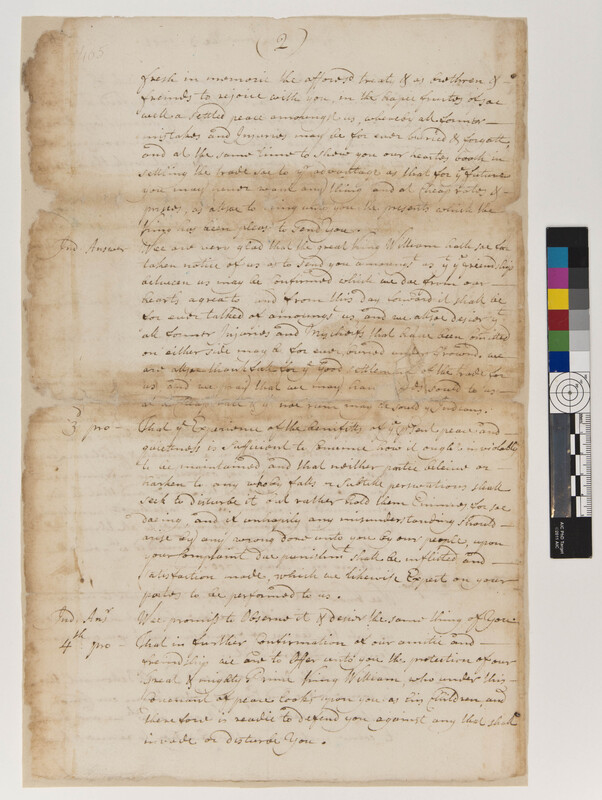 (2)
fresh in memorie the aforesd treate & as brethren &
freinds to rejoice with you, in the happe fruites of soe
well a settled peace amoungst us, whereby all former
mistakes and Injuries may be for ever buried & forgott,
and at the same time to shew you our heartes both in
setling the trade soe to yr advantage as that for ye future
you may never want any thing and at cheap rates &
prises, as alsoe to bring unto you the presents which the
King has been pleasd to send you.
Ind Answer Wee are very glad that the great King William hath soe far
taken notice of us as to send you amoungst us yt ye freindship
between us may be confirmed which we doe from our
hearts agree to and from this day forward it shall be
for ever talked of amoungst us, and we alsoe desier yt
all former Injuries and Mischeifs that have been
on either side may be for ever buried under ground, we
are alsoe thankfull for ye good settlement of the trade for
us, and we pray that we may have sould to us
noe rum may be sould ye Indians.
3d pro- That ye Experience of the benefitts of ye present peace and
quietness is sufficient to Evidence how it ought inviolably
to be maintained, and that neither partie beleive or
harken to any whose falce or subtile perswations shall
seek to disturbe it but rather hold them Enimies for soe
doeing, and if unhapily any misunderstanding should
arise by any wrong done unto you by our people, upon
your complaint due punishmt shall be inflicted and
satisfaction made, which we likewise Expect on your
partes to be performed to us.
Ind Ansr Wee promise to Observe it & desier the same thing of You
4th pro- That in further Confirmation of our amitie and
freindship we are to Offer unto you the protection of our
Great & mighty Prince King William, who under this
Covenant of peace lookes upon you as his Children, and
therefore is readie to defend you against any that shall
invade or disturbe You.